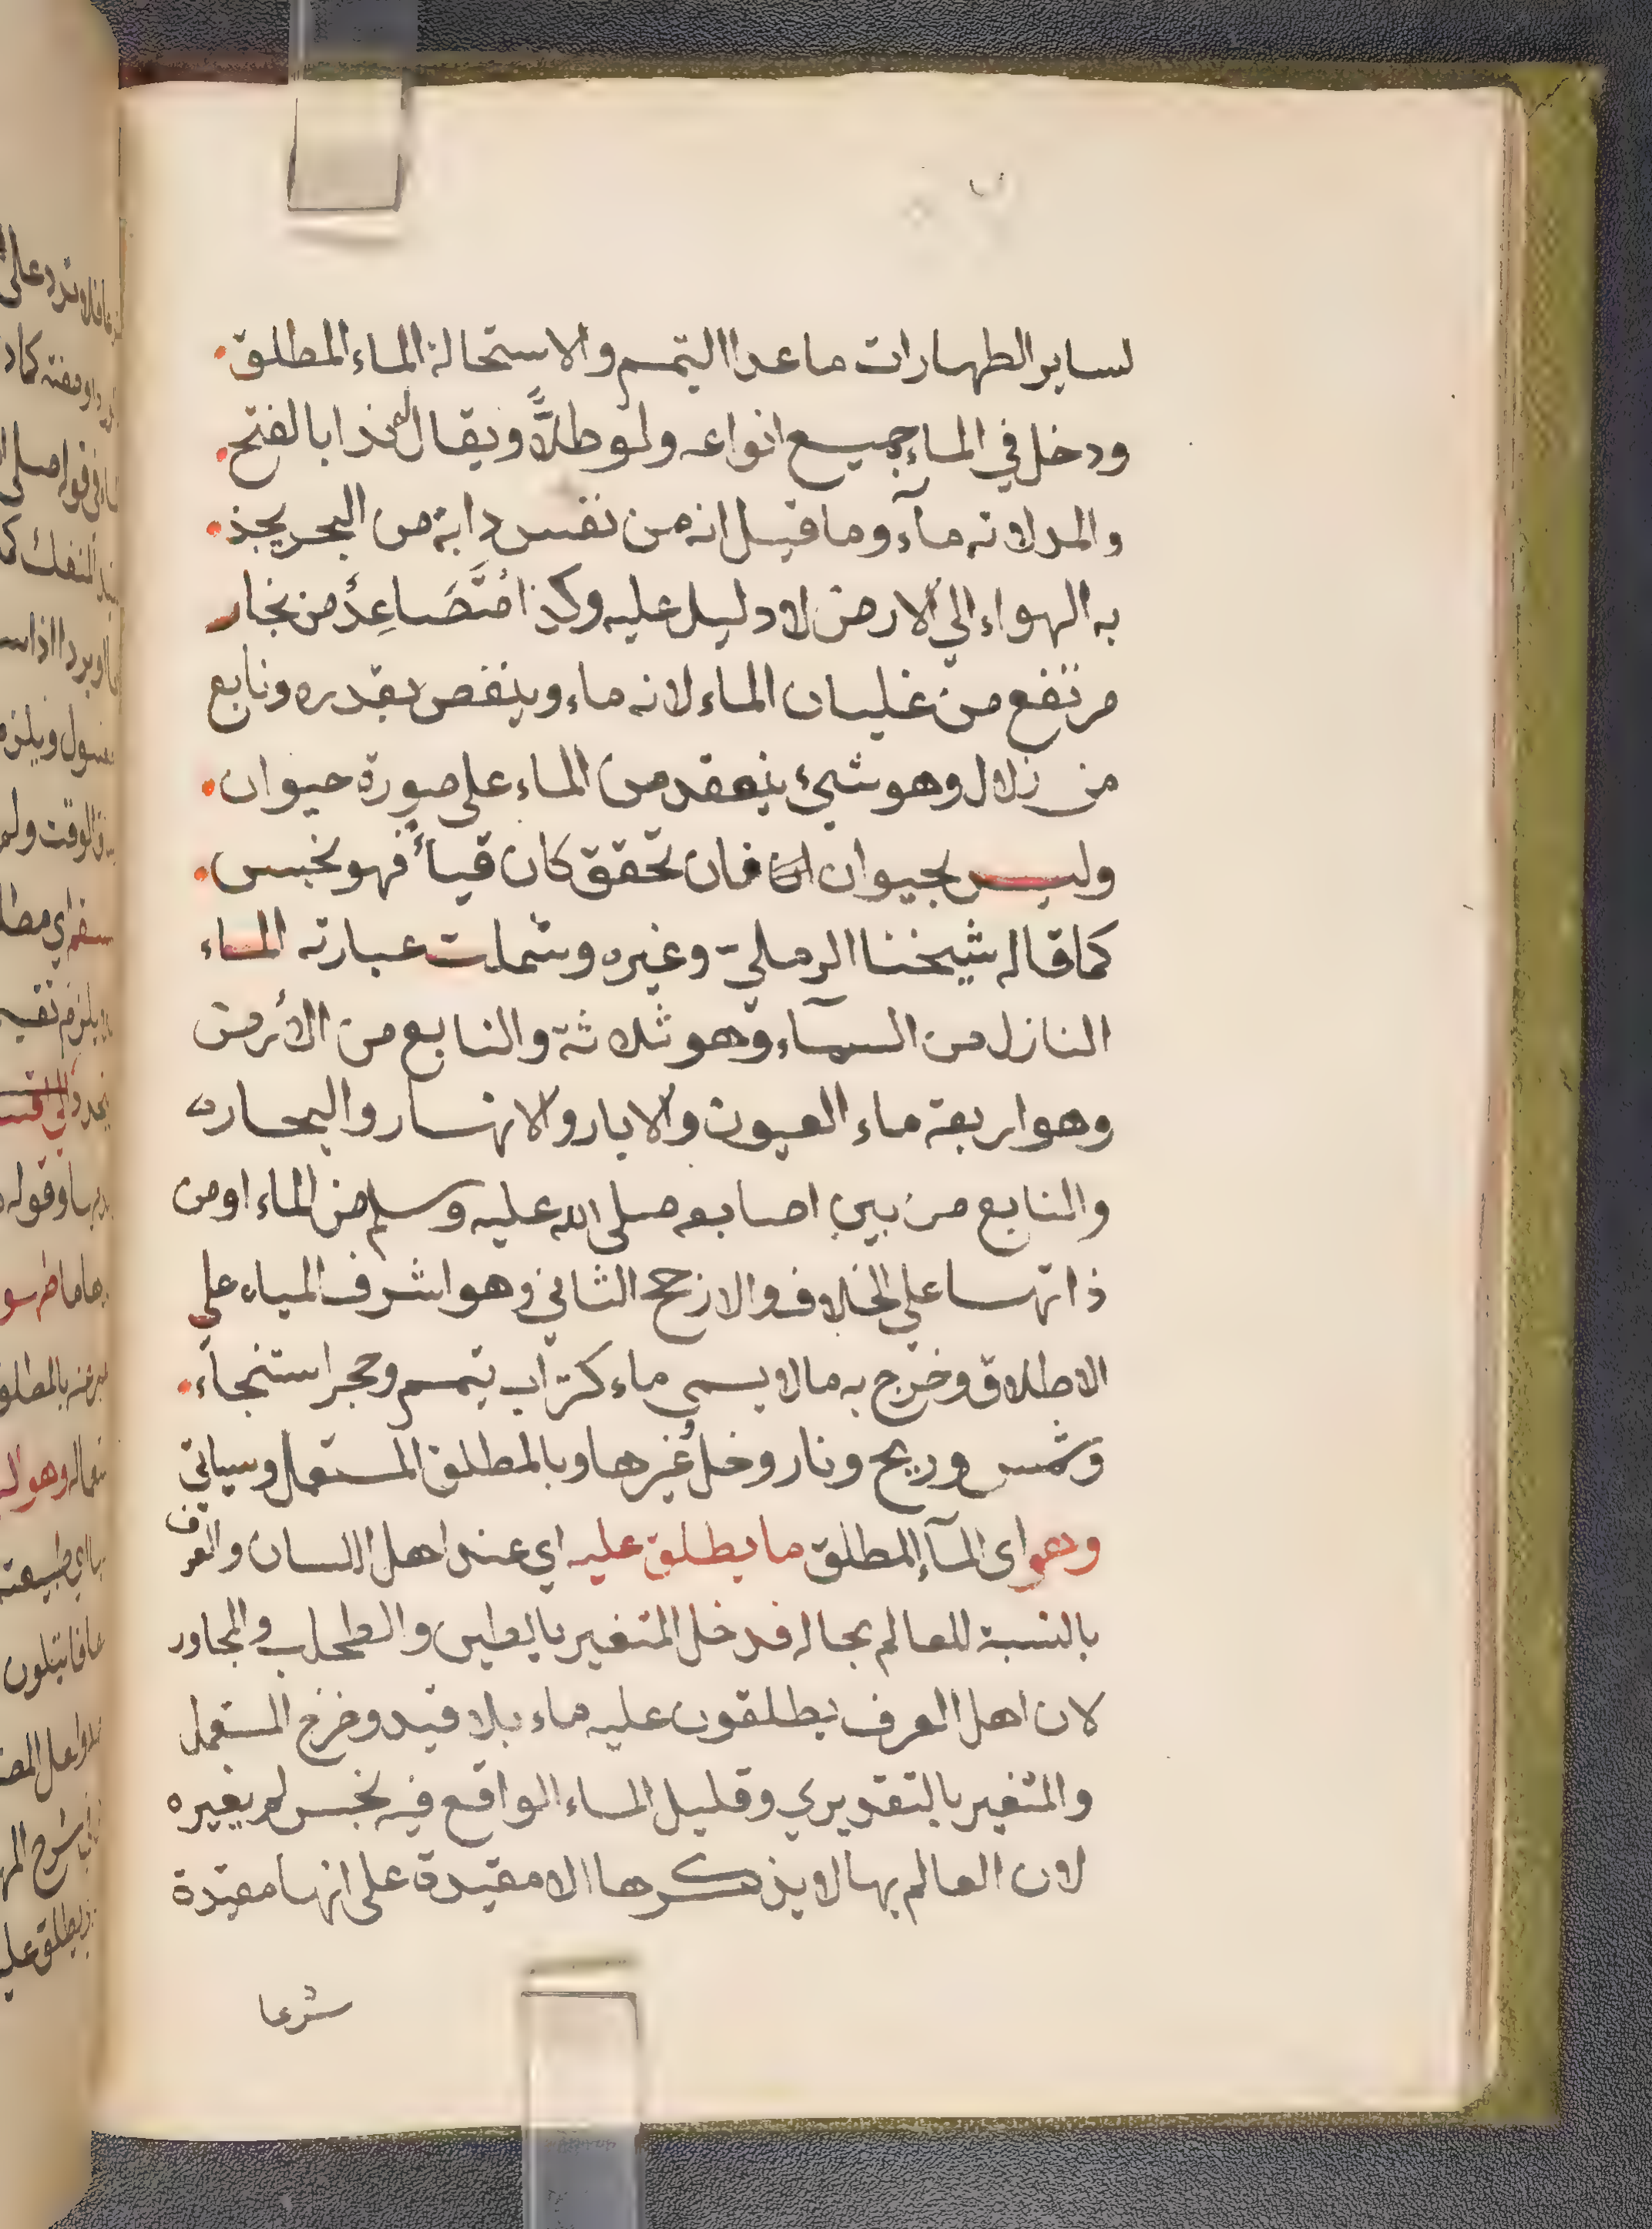 لساير الطهارات ماعدا التيمم والاستحالة الماء المطلق
ودخل في الماء جميع انواعه ولو طلًّا ويقال له ندا بالفتح
والمد لانه مآء وما قيل انه من نفس دابة من البحر يجذ
به الهواء الي الارض لا دليل عليه وكذا مُتَصَاعِدٌ من بخار
مرتفع من غليان الماء لانه ماء وينقص بقدره ونابع
من زلال وهو شيئ ينعقد من الماء علي صورة حيوان
وليس بحيوان فان تحقق كان قيأ فهو نجس
كما قاله شيخنا الرملي وغيره وشملت عبارته الماء
النازل من السمآء وهو ثلاثة والنابع من الأرض
وهو اربعة ماء العيون والابار والانهار والبحار
والنابع من بين اصابعه صلى الله عليه وسلم من الماء او من
ذاتها علي الخلاف والارجح الثاني وهو اشرف المياه علي
الاطلاق وخرج به مالا يسمي ماء كتراب تيمم وحجر استنجاء
وشمس وريح ونار وخل وغيرها وبالمطلق المستعمل وسياتي
وهو اى المآء المطلق ما يطلق عليه اي عند اهل اللسان والعرف
بالنسبة للعالم بحاله فدخل المتغير بالطين والطحلب والمجاور
لان اهل العرف يطلقون عليه ماء بلا قيد وخرج المستعمل
والمتغير بالتقديري وقليل الماء الواقع فيه نجس لم يغيره
لان العالم بها لا يذكرها الا مقيدة على انها مقيدة
شرعا